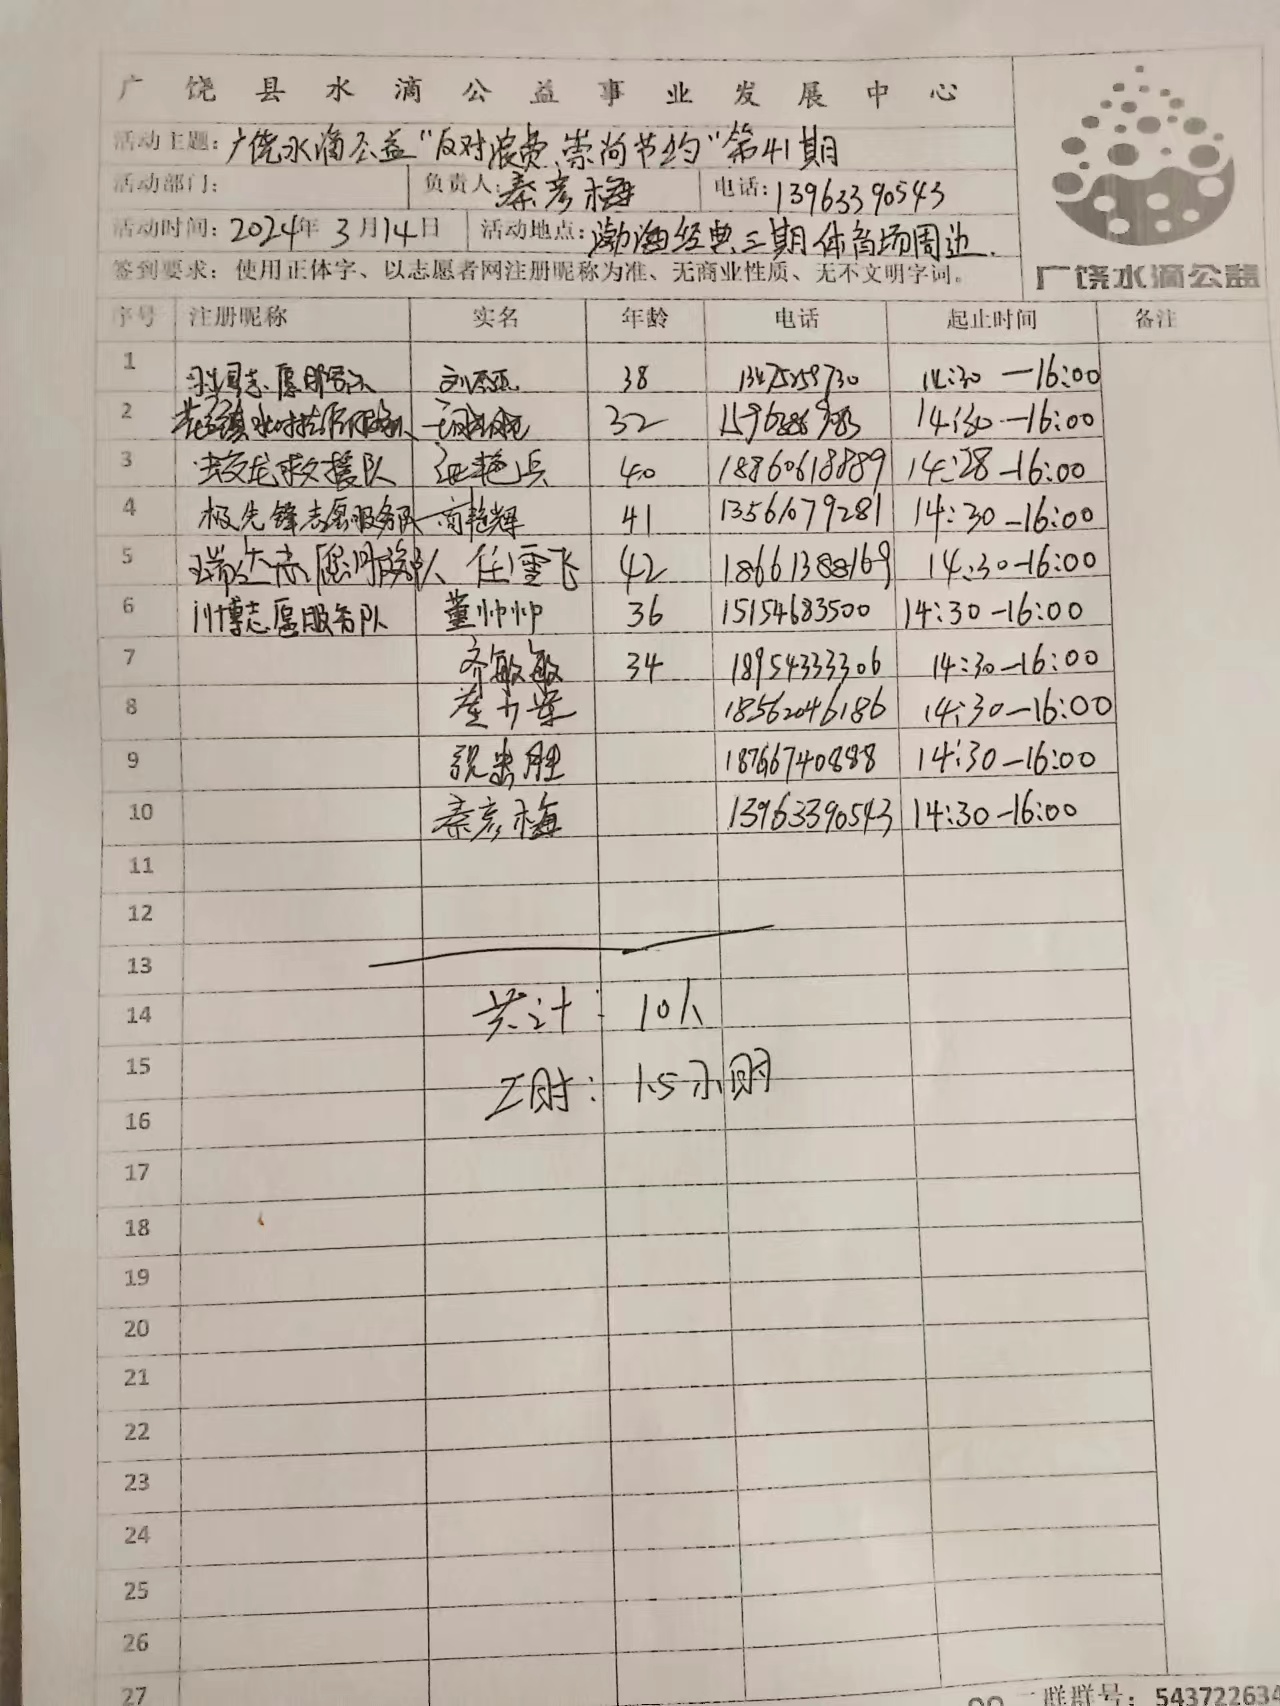 广饶县水滴公益事业发展中心
活动主题:广饶水滴公益"反对浪费、崇尚节约"第41期
活动部门: 负责人:秦彦梅 电话:13963390543
活动时间:2024年3月14日 活动地点:渤海经典三期体育场周边.
签到要求:使用正体字、以志愿者网注册昵称为准、无商业性质、无不文明字词。
广饶水滴公益
序号 注册昵称 实名 年龄 电话 起止时间 备注
1 38 14:30—16:00
2 32 14:30—16:00
3 救援队 40 18860618889 14:28—16:00
4 极先锋志愿服务队 商艳辉 41 13561079281 14:30—16:00
5 志愿服务队 任雪飞 42 18661388169 14:30—16:00
6 川博志愿服务队 董帅帅 36 15154683500 14:30—16:00
7 齐敏敏 34 18954333306 14:30—16:00
8 18562046186 14:30—16:00
9 18766740888 14:30—16:00
10 秦彦梅 13963390543 14:30—16:00
11
12
13
14 共计:10人
15 工时:1.5小时
16
17
18
19
20
21
22
23
24
25
26
27
群群号:543722634